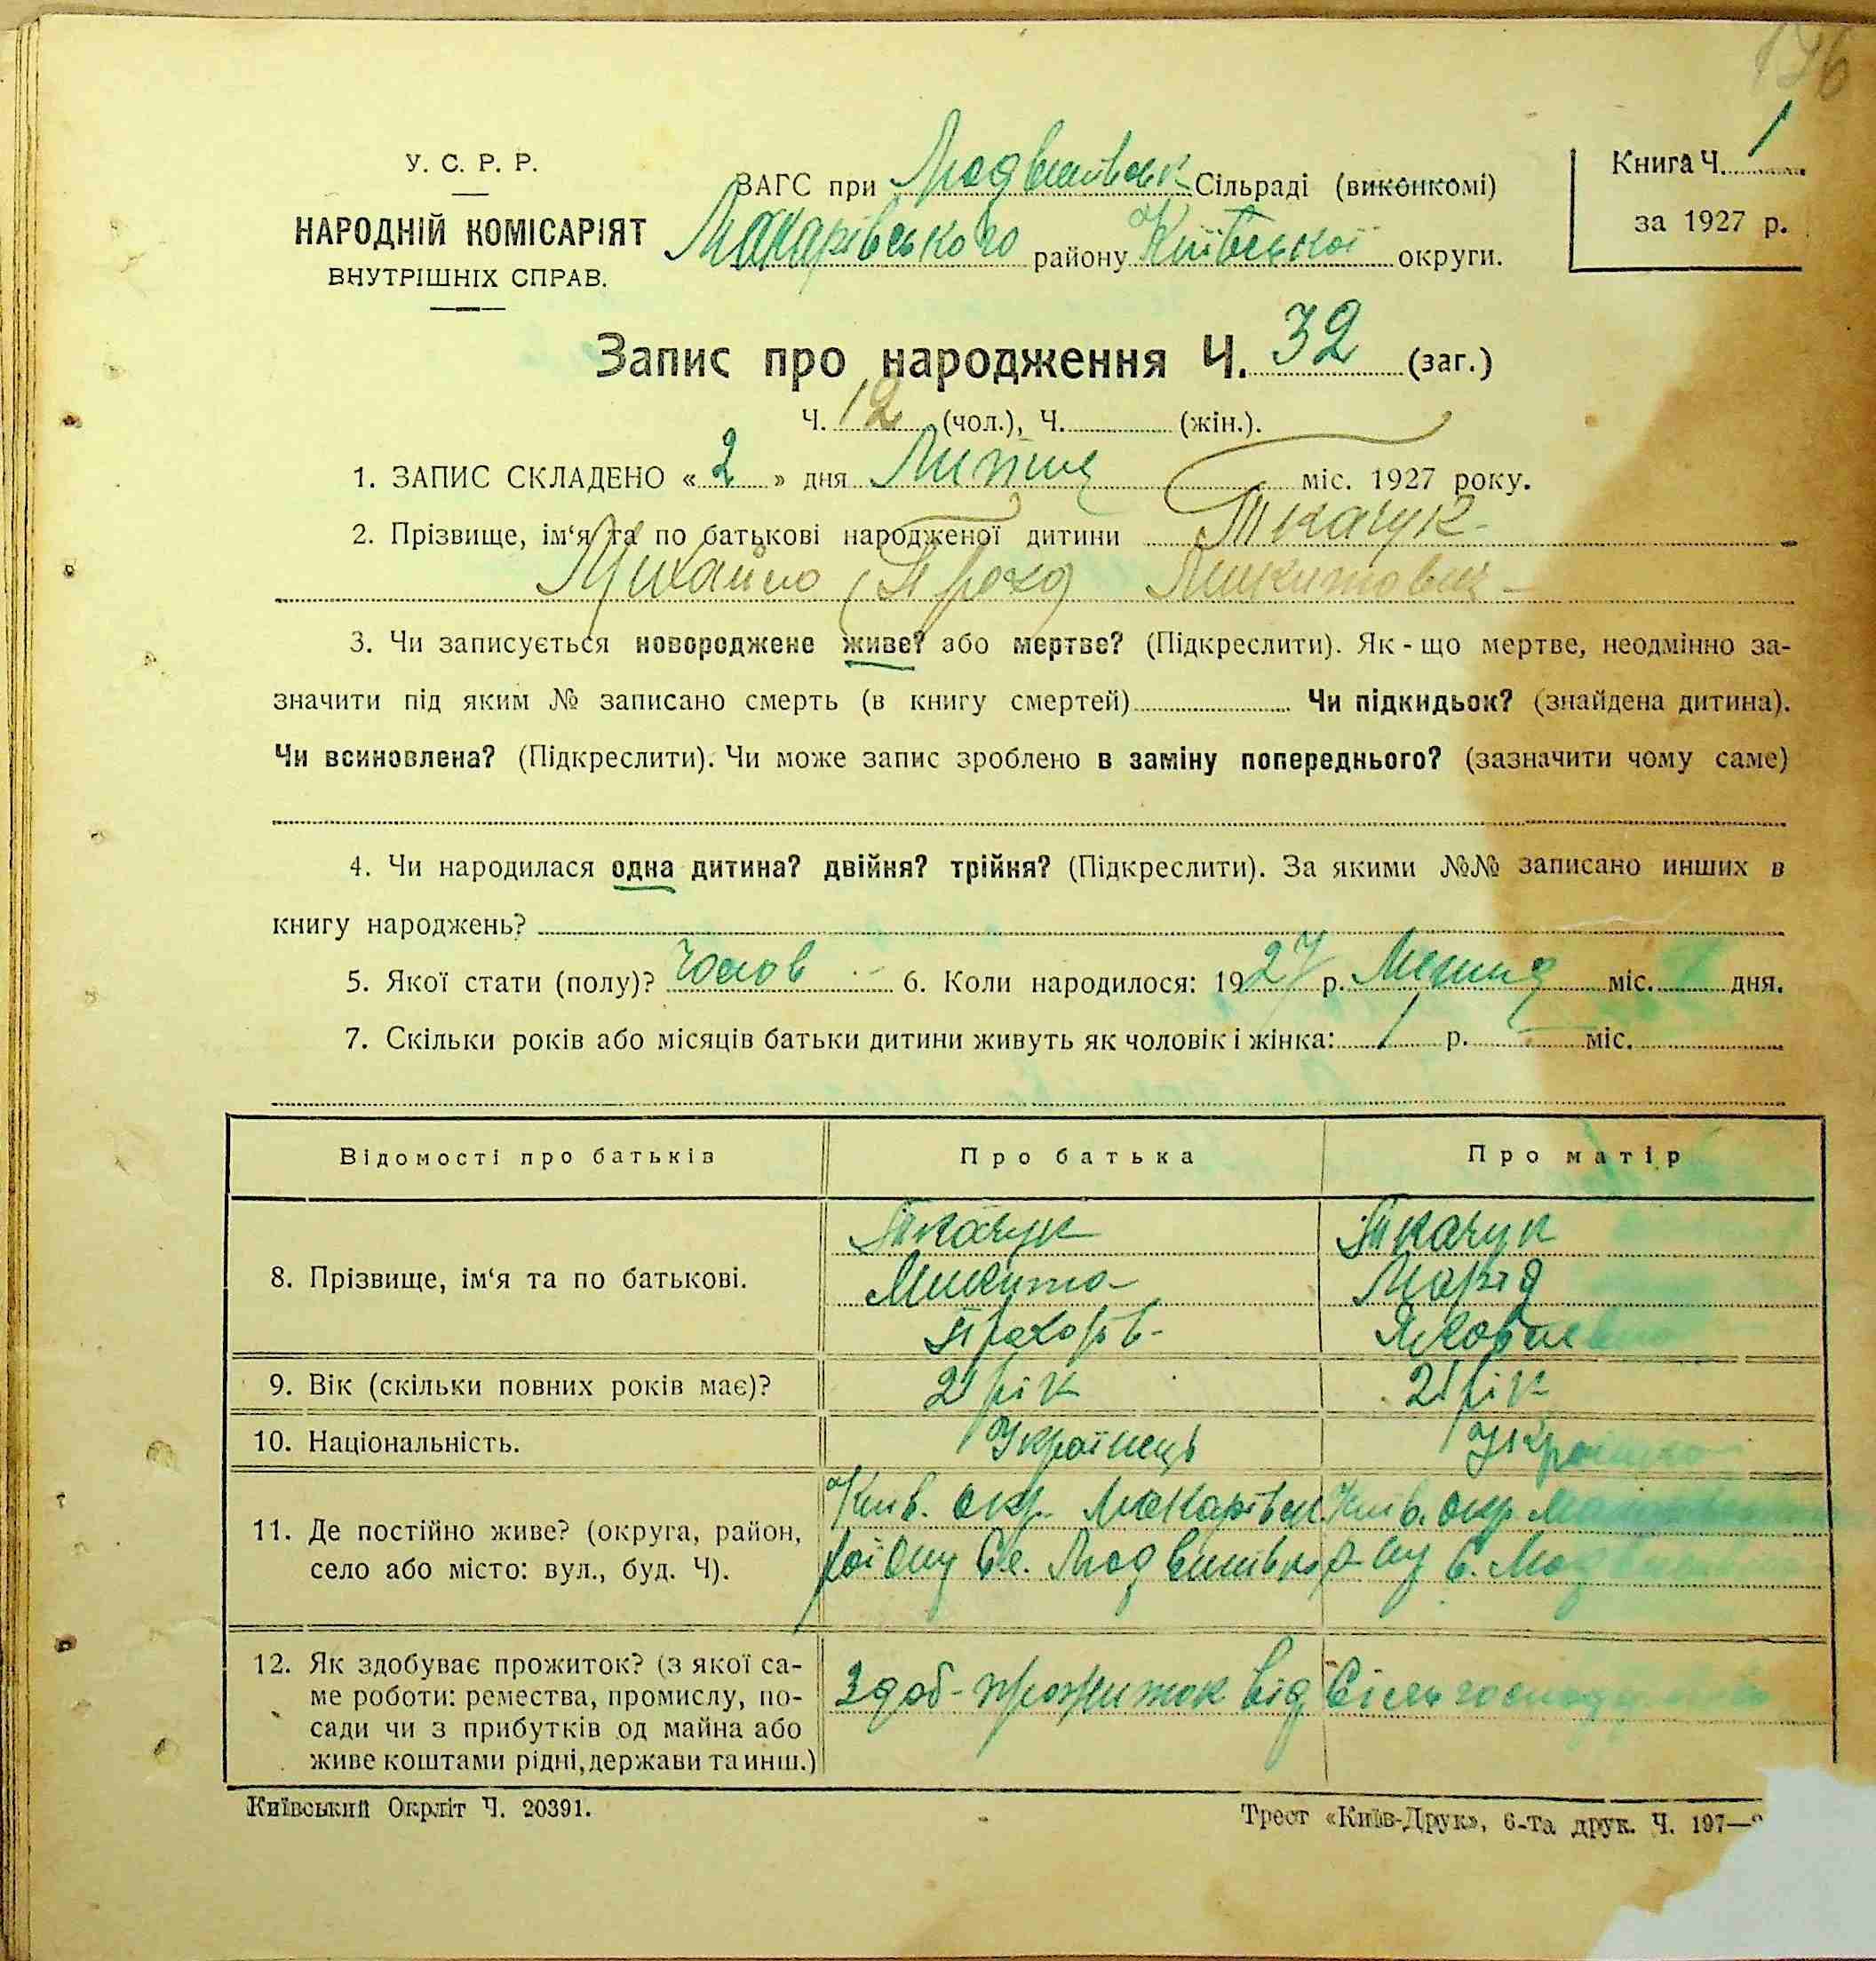 196
У. С. Р. Р.
НАРОДНІЙ КОМІСАРІЯТ
ВНУТРІШНІХ СПРАВ.
ЗАГС при Людвинівськ Сільраді (виконкомі)
Макарівського району Київської округи.
Книга Ч. 1
за 1927 р.
Запис про народження Ч. 32 (заг.)
Ч. 12 (чол.), Ч. (жін.).
1. ЗАПИС СКЛАДЕНО « 2 » дня Липня міс. 1927 року.
2. Прізвище, ім‘я та по батькові народженої дитини Ткачук
Михайло Микитович
3. Чи записується новороджене живе? або мертве? (Підкреслити). Як - що мертве, неодмінно за-
значити під яким № записано смерть (в книгу смертей) Чи підкидьок? (знайдена дитина).
Чи всиновлена? (Підкреслити). Чи може запис зроблено в заміну попереднього? (зазначити чому саме)
4. Чи народилася одна дитина? двійня? трійня? (Підкреслити). За якими №№ записано инших в
книгу народжень?
5. Якої стати (полу)? Чолов 6. Коли народилося: 1927 р. Липня міс. 1 дня.
7. Скільки років або місяців батьки дитини живуть як чоловік і жінка: 1 р. міс.
Відомості про батьків Про батька Про матір
8. Прізвище, ім‘я та по батькові.
Ткачук Ткачук
Микита Марія
Прохорів-
9. Вік (скільки повних років має)? 21 рік 21 рік
10. Національність. Українець Українка
11. Де постійно живе? (округа, район,
село або місто: вул., буд. Ч).
Київ. окр. Макарівськ. Київ. окр.
району Се. Людвинівка р-ну С.
12. Як здобуває прожиток? (з якої са-
ме роботи: ремества, промислу, по-
сади чи з прибутків од майна або
живе коштами рідні, держави та инш.)
Здоб- прожиток від
Київський Окрліт Ч. 20391.
Трест «Київ-Друк», 6-та друк. Ч. 197—